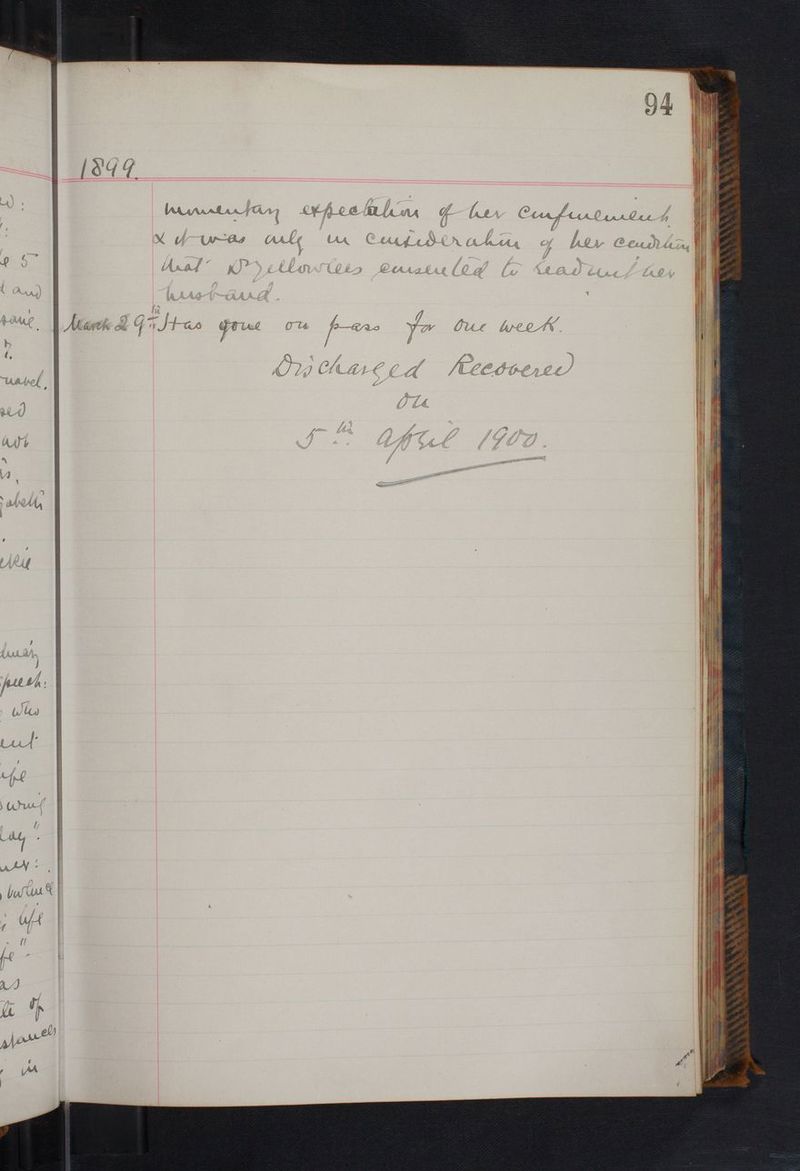 94
1899.
momentary expectation of her confinement
& it was only in consideration of her condition
that Dr Yellowlees consented to readmit her
husband.
March 29th Has gone on pass for one week.
Discharged Recovered
on
5th April 1900.